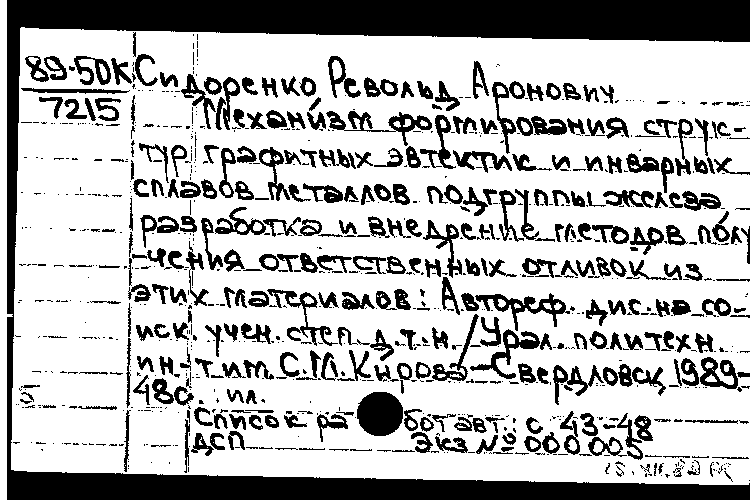 89-50К
7215
Сидоренко Револьд Аронович
Механизм формирования струк-
тур графитных эвтектик и инварных
сплавов металлов подгруппы железа
разработка и внедрение методов полу
-чения ответственных отливок из
этих материалов: Автореф. дис. на со-
иск. учен. степ д.т.н./Урал. политехн.
ин.-т им. С.М. Кирова-Свердловск, 1989-
48с. : ил.
Список работ авт.: с. 43-48
ДСП Экз № 000005
5